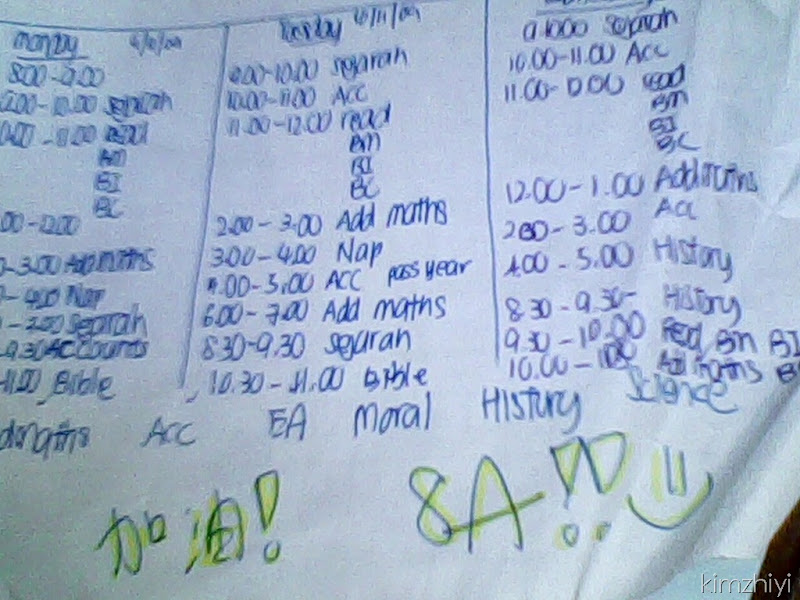 monday
8.00-9.00
9.00-10.00 sejarah
-11.00 read
BM
BI
BC
-3.00 Add maths
-4.00 Nap
-7.00 sejarah
-9.30 Accounts
-11.00 Bible
Tuesday
9.00-10.00 sejarah
10.00-11.00 Acc
11.00-12.00 read
BM
BI
BC
2.00-3.00 Add maths
3.00-4.00 Nap
4.00-5.00 ACC pass year
6.00-7.00 Add maths
8.30-9.30 sejarah
10.30-11.00 Bible
sejarah
10.00-11.00 Acc
read
BM
BI
BC
12.00-1.00 Add maths
2.00-3.00 Acc
4.00-5.00 History
8.30-9.30- History
9.30-10.00 Read BM BI
Add maths
Acc EA Moral History Science
加油! 8A!!
kimzhiyi